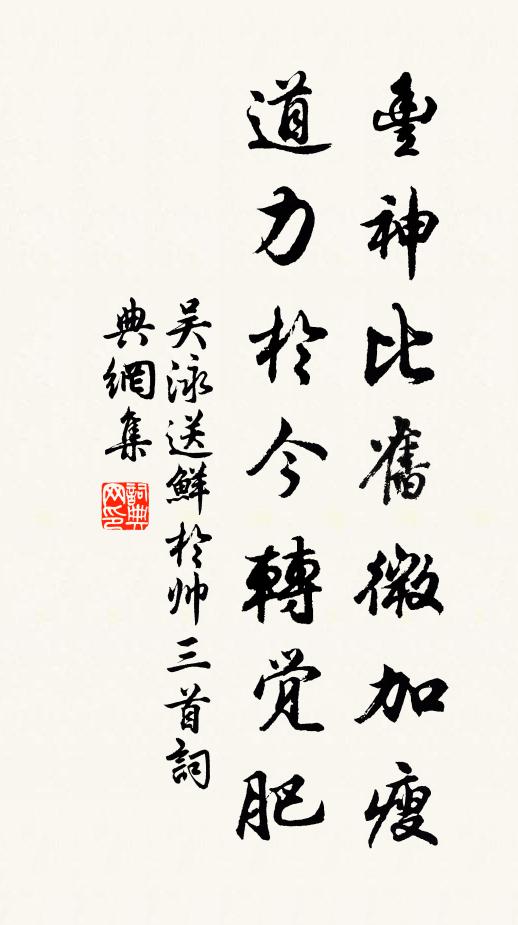 豊神比舊微加瘦
道力於今轉覺肥
吴泳送鮮於帅三首詞
典網集
詞典网印